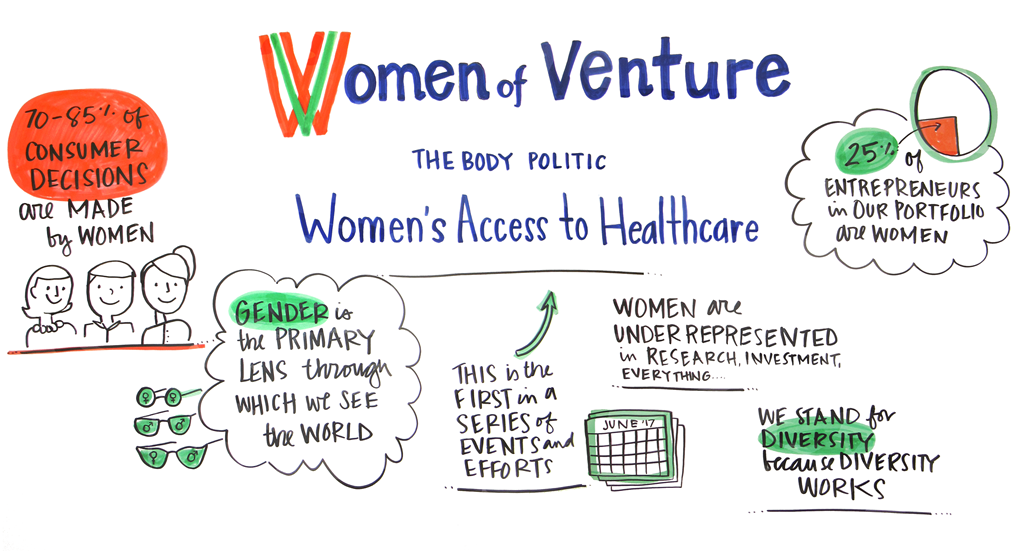 Women of Venture
THE BODY POLITIC
Women's Access to Healthcare
70-85% of
CONSUMER
DECISIONS
are MADE
by WOMEN
25% of
ENTREPRENEURS
in OUR PORTFOLIO
are WOMEN
GENDER is
the PRIMARY
LENS through
WHICH WE SEE
the WORLD
THIS is the
FIRST in a
SERIES of
EVENTS and
EFFORTS
JUNE '17
WOMEN are
UNDER REPRESENTED
in RESEARCH, INVESTMENT,
EVERYTHING....
WE STAND for
DIVERSITY
because DIVERSITY
WORKS